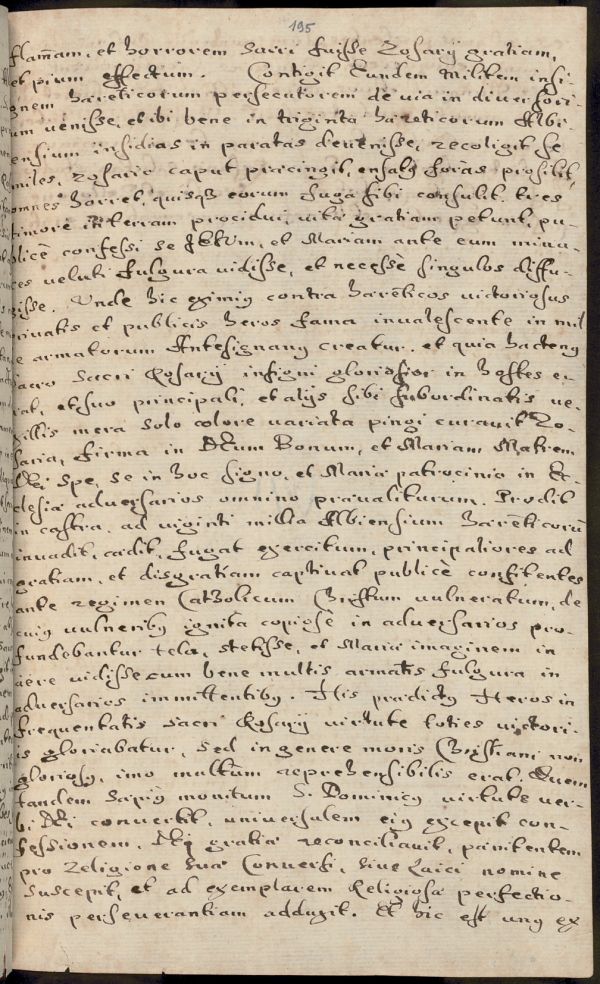 195
flam̄am, et horrorem Sacri fuisse Rosarij gratiam,
et pium effectum. Contigit Eundem Militem insi-
gnem haereticorum persecutorem de via in diversori-
um venisse, et ibi bene in triginta haereticorum Albi-
ensium insidias in paratas devenisse, recoligit se
miles, rosario caput praecingit, ensatq foras prosilit,
omnes horret, quisq eorum fuga sibi consulit. tres
timore in terram procidui, vitae gratiam petunt, pu-
blicè confessi se IESUm, et Mariam ante eum minu-
es veluti fulgura vidisse, et necessè singulos diffu-
gisse. Unde hic eximiq contra haerēticos victoriosus
privatis et publicis heros fama invalescente in mil
e armatorum Antesignanq creatur. et quia hactenq
sacro Sacri Rosarij insigni gloriosior in hostes e-
rat, et suo principali, et alijs sibi subordinatis ve-
xillis mera solo colore variata pingi curavit Ro-
saria, firma in DEum Bonum, et Mariam Matrem
DEi spe, se in hoc signo, et Mariae patrocinio in Ec-
clesiae adversarios omnino praevaliturum. Prodit
in castra, ad viginti millia Albiensium haerēticorū
invadit, caedit, fugat exercitum, principaliores ad
gratiam, et disgratiam captivat publicè confitentes
ante regimen Catholicum Christum vulneratum, de
cuiq vulneribq ignita copiosè in adversarios pro-
fundebantur tela, stetisse, et Mariae imaginem in
aëre vidisse cum bene multis armatis fulgura in
adversarios immittentibq. His praedictq Heros in
frequentatis Sacri Rosarij virtute toties victori-
is gloriabatur, sed in genere moris Christiani non
gloriosq, imo multùm reprehensibilis erat. Quem
tandem saepiq monitum S. Dominicq virtute ver-
bi DEi convertit, universalem eiq excepit con-
fessionem, DEi gratiae reconciliavit, paenitentem
pro Religione sua Conversi, sive Laici nomine
suscepit, et ad exemplarem Religiosae perfectio-
nis perseverantiam adduxit. Et hic est unq ex